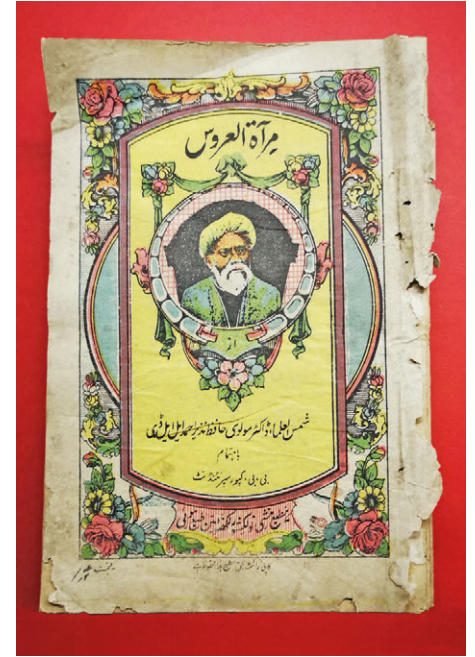 مرآۃ العروس
از
شمس العلما ڈاکٹر مولوی حافظ نذیر احمد ایل ایل ڈی
باہتمام
بی۔ بی۔ کپور سپرنٹنڈنٹ
مطبع منشی نولکشور لکھنؤ میں طبع ہوئی
کاپی رائٹ بحق مطبع ہذا محفوظ ہے